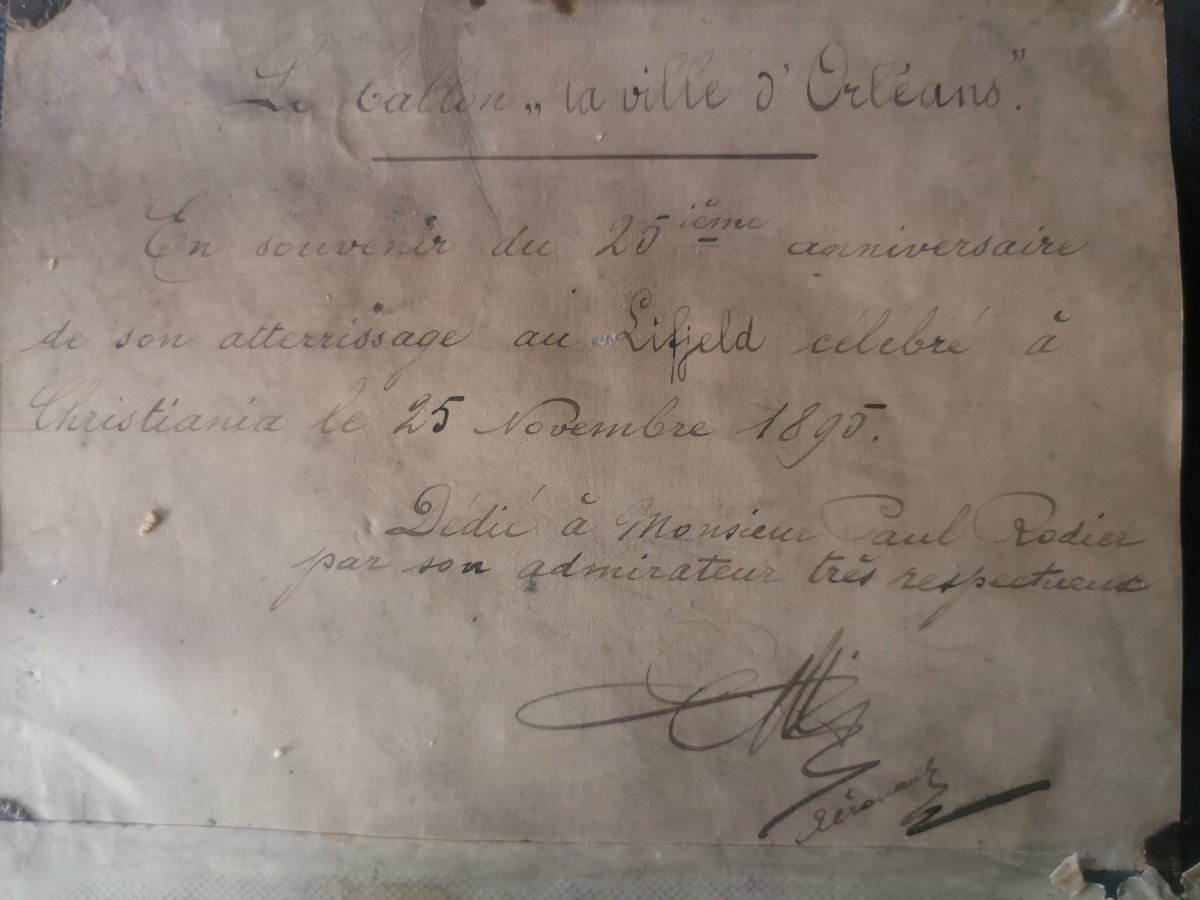 Le ballon „la ville d'Orléans".
En souvenir du 25ième anniversaire
de son atterrissage au Lifjeld célébré à
Christiania le 25 Novembre 1895.
Dédié à Monsieur Paul Rodier
par son admirateur très respectueux